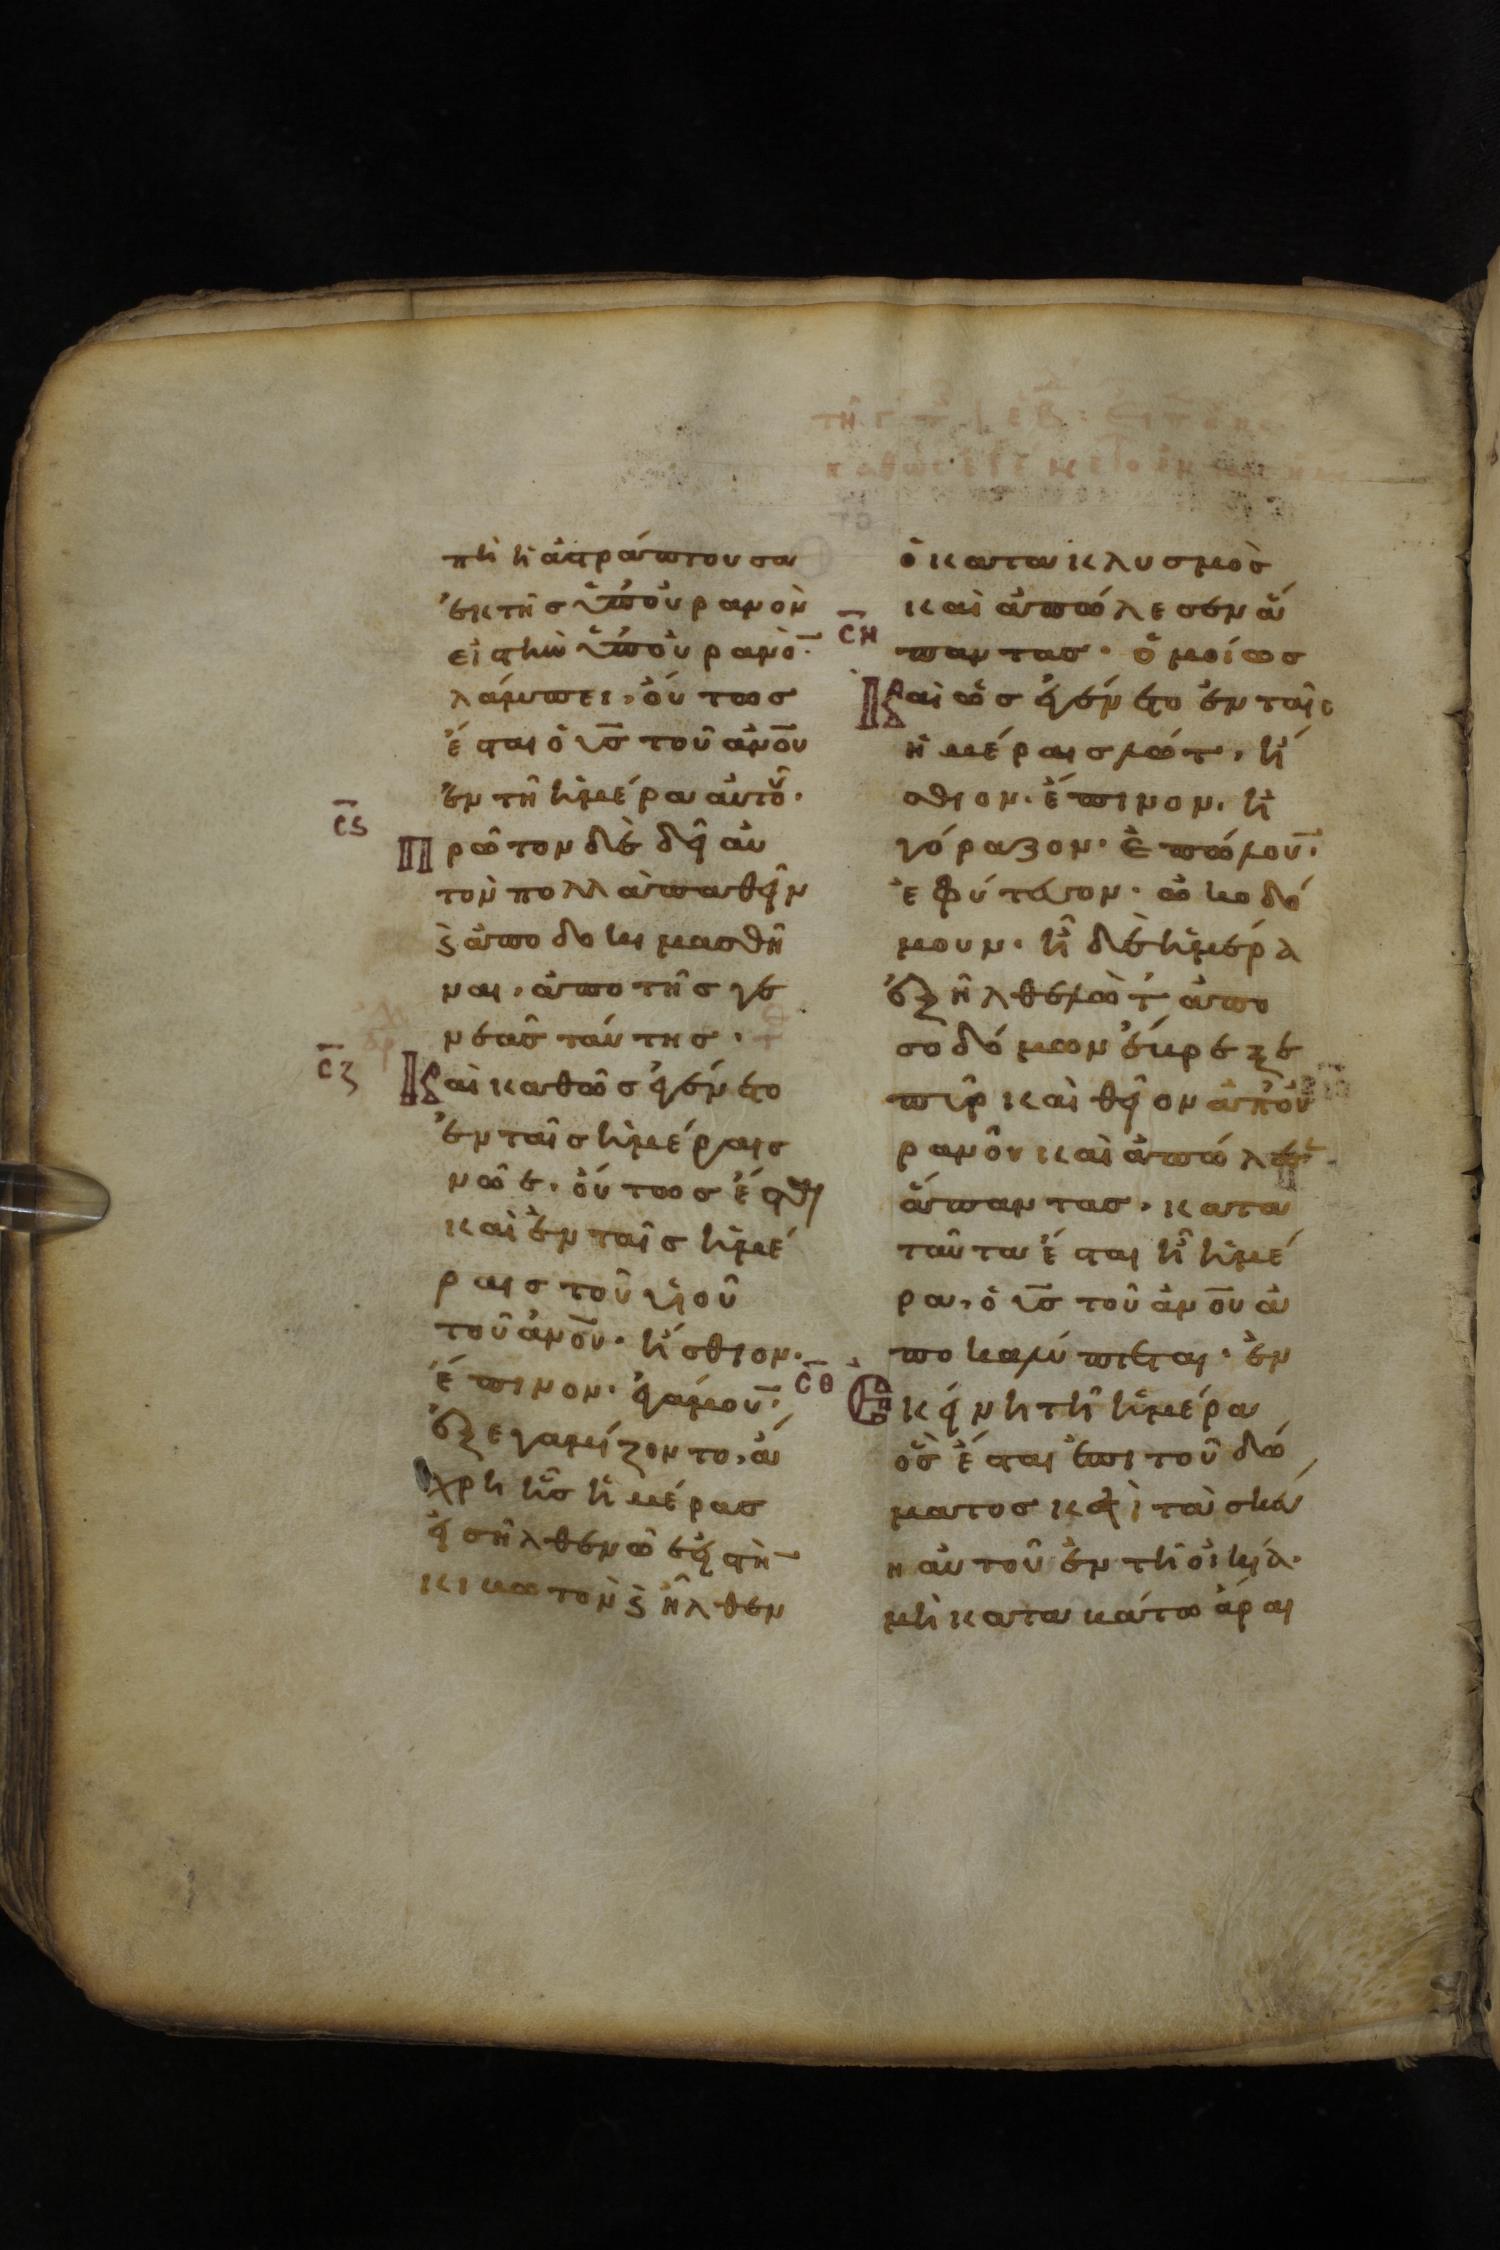 πὴ ἡ ἀστράπτουσα
ἐκ τῆς ὑπ' οὐρανὸν
εἰς τὴν ὑπ' οὐρανὸ̅·
λάμπει, οὕτως
ἔσται ὁ υ̅ς̅ τοῦ ἀν̅ο̅υ̅
ἐν τῆ ἡμέρα αὐτοῦ·
ς̅ς̅
Πρῶτον δὲ δεῖ αὐ
τὸν πολλὰ παθεῖν
ϗ ἀποδοκιμασθῆ
ναι, ἀπο τῆς γε
νεᾶς ταύτης·
ς̅ζ̅
Καὶ καθῶς ἐγένετο
ἐν ταῖς ἡμέραις
νῶε, οὕτως ἔσται
καὶ ἐν ταῖς ἡμέ
ραις τοῦ υἱοῦ
τοῦ ἀν̅ο̅υ̅· ἤσθιον·
ἔπινον· ἐγάμου̅·
ἐξεγαμίζοντο, ἄ
χρι ἧς ἡμέρας
εἰσῆλθε νῶε εἰς τὴ̅
κιβωτὸν ϗ ἦλθεν
ὁ κατακλυσμὸς
καὶ ἀπώλεσεν ἅ
παντας· ὁμοίως
ς̅η̅
Καὶ ὡς ἐγένετο ἐν ταῖς
ἡμέραις λώτ, ἤ
σθιον· ἔπινον, ἠ
γόραζον· ἐπώλου̅·
ἐφύτευον· ὠκοδό
μουν· ἧ δὲ ἡμέρα
ἐξῆλθε λὼτ ἀπο
σοδόμων ἔβρεξε
πῦρ καὶ θεῖον ἀπ' οὐ
ρανοῦ καὶ ἀπώλεσεν
ἅπαντας, κατα
ταῦτα ἔσται ἧ ἡμέ
ρα, ὁ υ̅ς̅ τοῦ ἀν̅ο̅υ̅ ἀ
ποκαλύπτεται· ἐν
ς̅θ̅
Ἐκείνη τῆ ἡμέρα
ὃς ἔσται ἐπι τοῦ δώ
ματος καὶ τὰ σκεύ
η αὐτοῦ ἐν τῆ οἰκία·
μὴ καταβάτω ἆραι